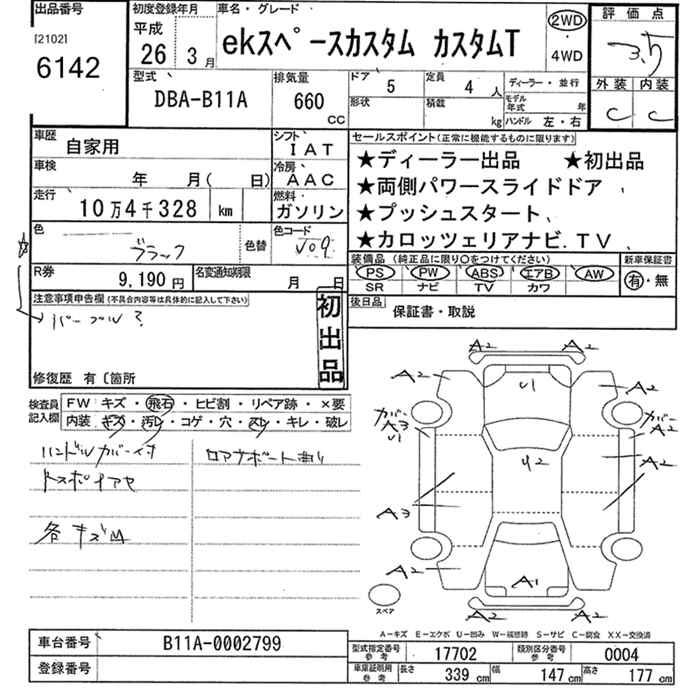 出品番号
[2102]
6142
初度登録年月
平成
26 年 3 月
車名・グレード
ekスペースカスタム カスタムT
2WD
・
4WD
評価点
3.5
外装 内装
C C
型式
DBA-B11A
排気量
660 CC
ドア 5
定員 4 人
形状
積載 kg
ディーラー・並行
モデル年式 年
ハンドル 左・右
車歴 自家用
シフト IAT
車検 年 月( 日)
冷房 AAC
走行 10万4千328 km
燃料 ガソリン
色 ブラック
色替
色コード V09
R券 9,190 円
名変通知期限 月 日
セールスポイント(正常に機能するものに限ります)
★ディーラー出品 ★初出品
★両側パワースライドドア
★プッシュスタート
★カロッツェリアナビ.TV
装備品(純正品に限り○をつけてください)
PS PW ABS エアB AW
SR ナビ TV カワ
新車保証書
有・無
後日品 保証書・取説
注意事項申告欄(不具合内容等は具体的に記入して下さい)
パープル?
初出品
修復歴 有〔箇所
検査員記入欄
FW キズ・飛石・ヒビ割・リペア跡・×要
内装 キズ・汚レ・コゲ・穴・スレ・キレ・破レ
ハンドルカバー付
ロアナボート曲り
各キズ凹
A2 A2
A2 U1 A2
カバー A3 U1
カバー A2
U2 A2
A3 A2
A2 A1 A2
A2 A2
スペア
A-キズ E-エクボ U-凹み W-補修跡 S-サビ C-腐食 XX-交換済
車台番号 B11A-0002799
登録番号
型式指定番号 参考 17702
類別区分番号 参考 0004
車庫証明用 参考 長さ 339 cm 幅 147 cm 高さ 177 cm